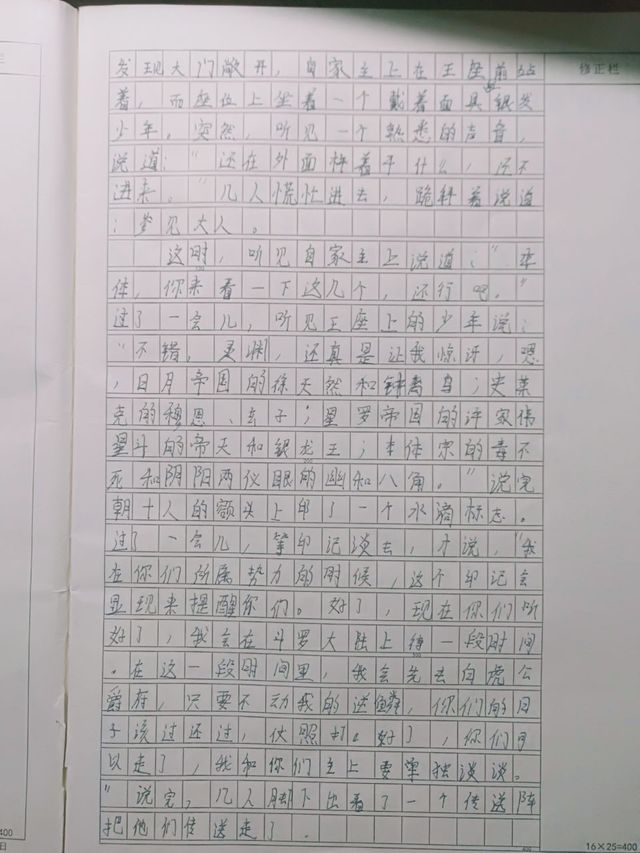 修正栏
发现大门敞开，自家主上在王座前站
着，而座位上坐着一个戴着面具银发
少年。突然，听见一个熟悉的声音，
说道：“还在外面待着干什么，还不
进来。”几人慌忙进去，跪拜着说道
：参见大人。
这时，听见自家主上说道：“本
体，你来看一下这几个，还行吧。”
过了一会儿，听见王座上的少年说：
“不错，灵渊，还真是让我惊讶，嗯
，日月帝国的徐天然和钟离乌；史莱
克的穆恩、玄子；星罗帝国的许家伟
星斗的帝天和银龙王；本体宗的毒不
死和阴阳两仪眼的幽和八角。”说完
朝十人的额头上印了一个水滴标志。
过了一会儿，等印记淡去，才说，“我
在你们所属势力的时候，这个印记会
显现来提醒你们。好了，现在你们听
好了，我会在斗罗大陆上待一段时间
。在这一段时间里，我会先去白虎公
爵府，只要不动我的逆鳞，你们的日
子该过还过，仗照打。好了，你们可
以走了，我和你们主上要单独谈谈。
”说完，几人脚下出看了一个传送阵
把他们传送走了．
16×25=400